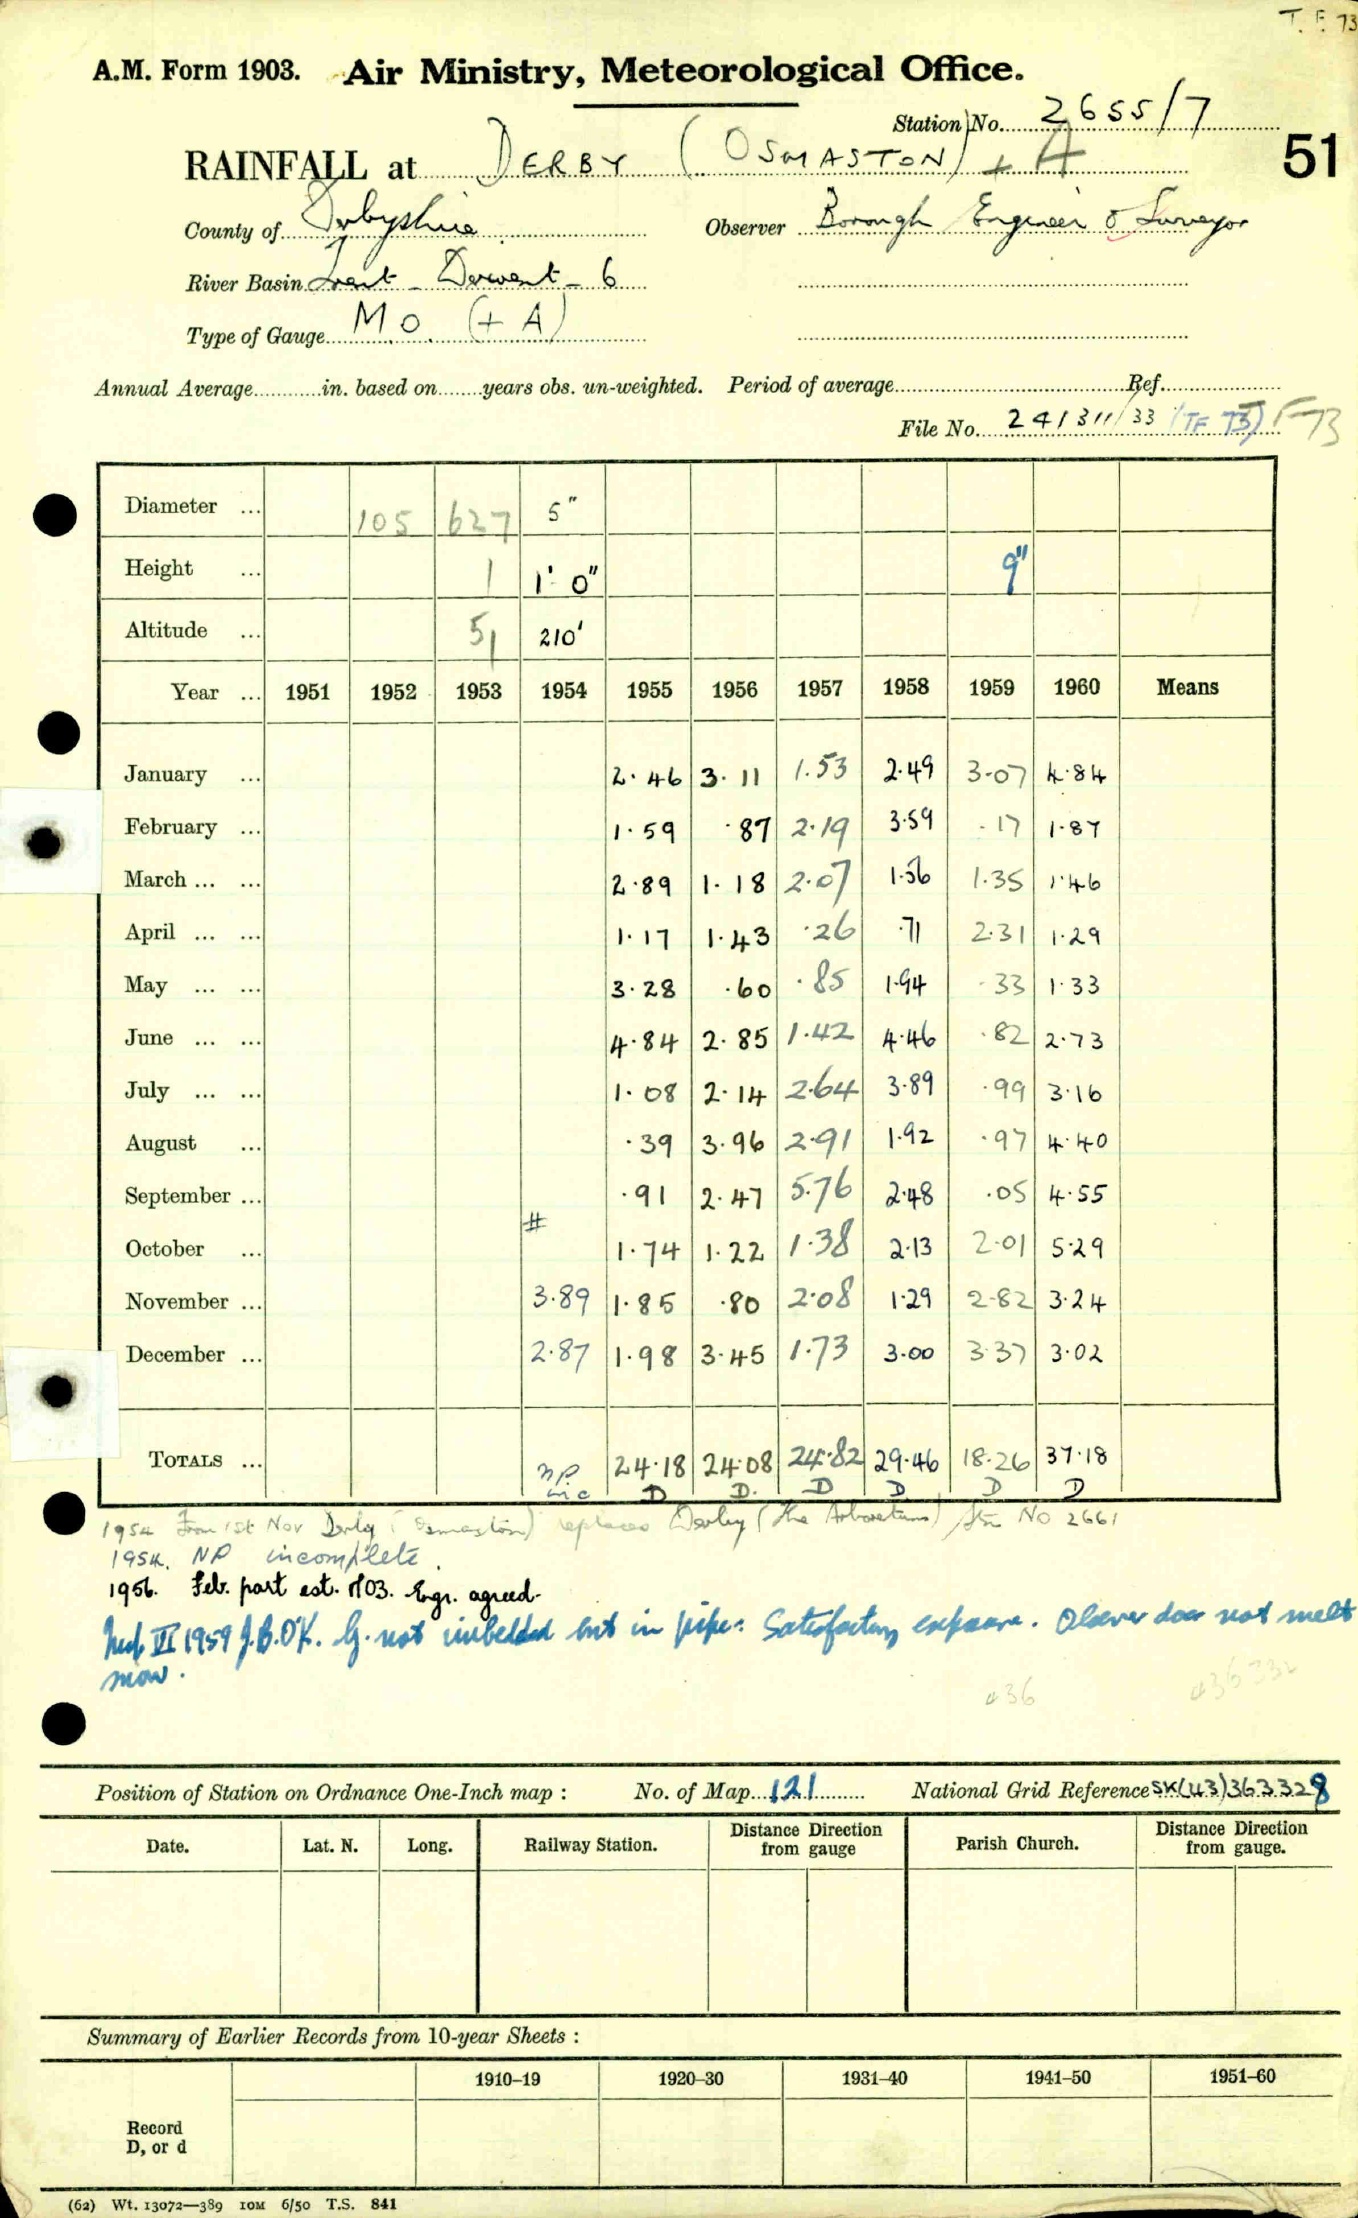 T. F. 73
A.M. Form 1903. Air Ministry, Meteorological Office.
Station No. 2655/7
51
RAINFALL at DERBY (OSMASTON) + A
County of Derbyshire Observer Borough Engineer & Surveyor
River Basin Trent - Derwent - 6
Type of Gauge MO (+ A)
Annual Average in. based on years obs. un-weighted. Period of average Ref.
File No. 241311/33 (TF 73) TF73
Diameter ... 105 627 5"
Height ... 1 1' 0" 9"
Altitude ... 51 210'
Year ... 1951 1952 1953 1954 1955 1956 1957 1958 1959 1960 Means
January ... 2.46 3.11 1.53 2.49 3.07 4.84
February ... 1.59 .87 2.19 3.59 .17 1.87
March ... ... 2.89 1.18 2.07 1.56 1.35 1.46
April ... ... 1.17 1.43 .26 .71 2.31 1.29
May ... ... 3.28 .60 .85 1.94 .33 1.33
June ... ... 4.84 2.85 1.42 4.46 .82 2.73
July ... ... 1.08 2.14 2.64 3.89 .99 3.16
August ... .39 3.96 2.91 1.92 .97 4.40
September ... .91 2.47 5.76 2.48 .05 4.55
#
October ... 1.74 1.22 1.38 2.13 2.01 5.29
November ... 3.89 1.85 .80 2.08 1.29 2.82 3.24
December ... 2.87 1.98 3.45 1.73 3.00 3.37 3.02
TOTALS ... NP 24.18 24.08 24.82 29.46 18.26 37.18
inc D D. D D D D
1954 From 1st Nov Derby (Osmaston) replaces Derby (The Arboretum) Stn No 2661
1954. NP incomplete.
1956. Feb. part est. M03. Engr. agreed.
Insp. VI 1959 J.B.O'K. G. not imbedded but in pipe. Satisfactory exposure. Observer does not melt
snow.
436 436332
Position of Station on Ordnance One-Inch map : No. of Map 121 National Grid Reference SK(43)363328
Date. Lat. N. Long. Railway Station. Distance Direction from gauge Parish Church. Distance Direction from gauge.
Summary of Earlier Records from 10-year Sheets :
1910–19 1920–30 1931–40 1941–50 1951–60
Record
D, or d
(62) Wt. 13072—389 10M 6/50 T.S. 841